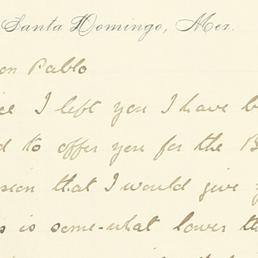 Santa Domingo, Mex.
on Pablo
ce I left you I have b
d to offer you for the B
sion that I would give y
s is some-what lower th